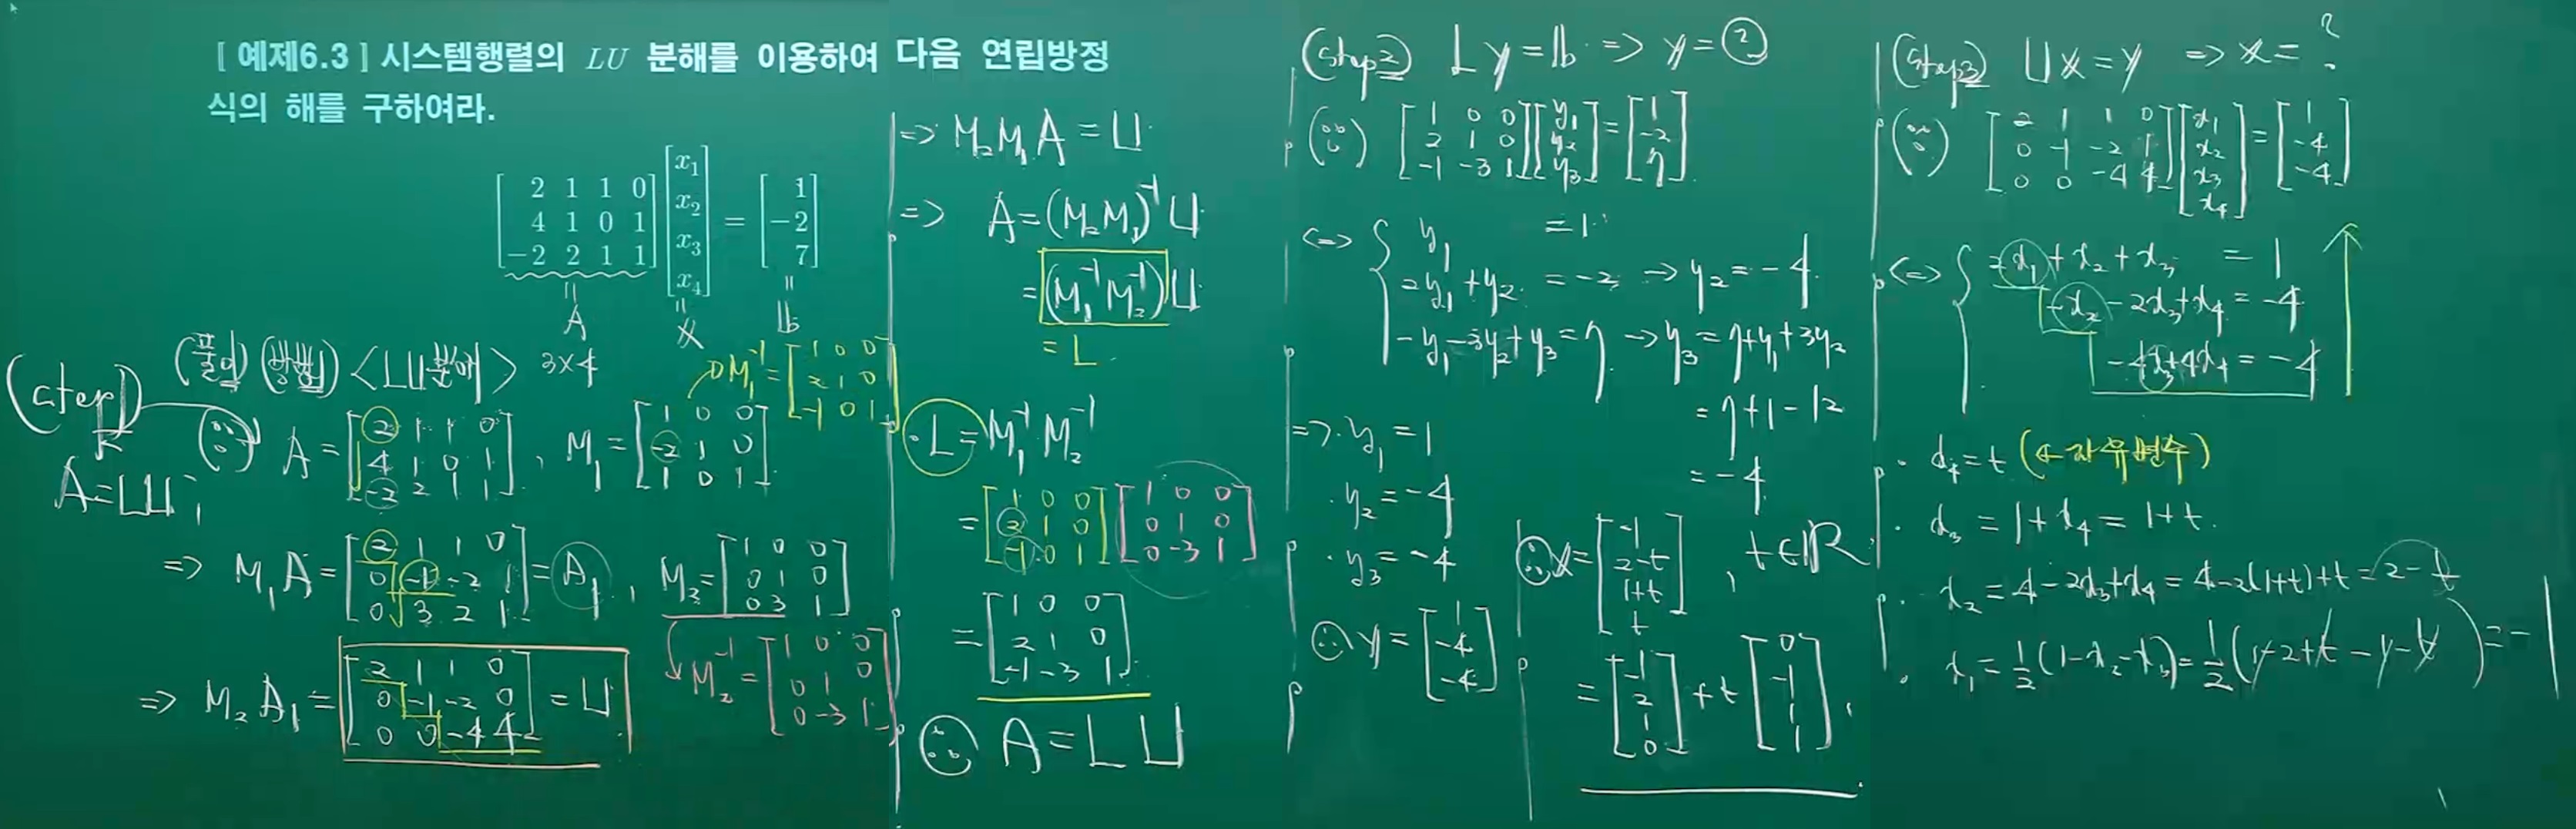 [ 예제6.3 ] 시스템행렬의 LU 분해를 이용하여 다음 연립방정
식의 해를 구하여라.
[2 1 1 0; 4 1 0 1; -2 2 1 1] [x₁; x₂; x₃; x₄] = [1; -2; 7]
= A   = x   = b
(step1) A=LU;
(풀이) (방법1) <LU분해> 3×4
(∵) A = [2 1 1 0; 4 1 0 1; -2 2 1 1], M₁ = [1 0 0; -2 1 0; 1 0 1]
→ M₁⁻¹ = [1 0 0; 2 1 0; -1 0 1]
=> M₁A = [2 1 1 0; 0 -1 -2 1; 0 3 2 1] = A₁, M₂ = [1 0 0; 0 1 0; 0 3 1]
M₂⁻¹ = [1 0 0; 0 1 0; 0 -3 1]
=> M₂A₁ = [2 1 1 0; 0 -1 -2 0; 0 0 -4 4] = U
=> M₂M₁A = U
=> A = (M₂M₁)⁻¹U
= (M₁⁻¹M₂⁻¹)U
= L
·L = M₁⁻¹M₂⁻¹
= [1 0 0; 2 1 0; -1 0 1] [1 0 0; 0 1 0; 0 -3 1]
= [1 0 0; 2 1 0; -1 -3 1]
∴ A = LU
(step2) Ly = b => y = ?
(∵) [1 0 0; 2 1 0; -1 -3 1] [y₁; y₂; y₃] = [1; -2; 7]
<=> { y₁ = 1
2y₁ + y₂ = -2 → y₂ = -4
-y₁ - 3y₂ + y₃ = 7 → y₃ = 7 + y₁ + 3y₂
= 7 + 1 - 12
= -4
=> · y₁ = 1
· y₂ = -4
· y₃ = -4
∴ y = [1; -4; -4]
∴ x = [-1; 2-t; 1+t; t], t∈ℝ
= [-1; 2; 1; 0] + t [0; -1; 1; 1]
(step3) Ux = y => x = ?
(∵) [2 1 1 0; 0 -1 -2 1; 0 0 -4 4] [x₁; x₂; x₃; x₄] = [1; -4; -4]
<=> { 2x₁ + x₂ + x₃ = 1
-x₂ - 2x₃ + x₄ = -4
-4x₃ + 4x₄ = -4
· x₄ = t (← 자유변수)
· x₃ = 1 + x₄ = 1 + t.
· x₂ = 4 - 2x₃ + x₄ = 4 - 2(1+t) + t = 2 - t
· x₁ = 1/2 (1 - x₂ - x₃) = 1/2 (1 - 2 + t - 1 - t) = -1